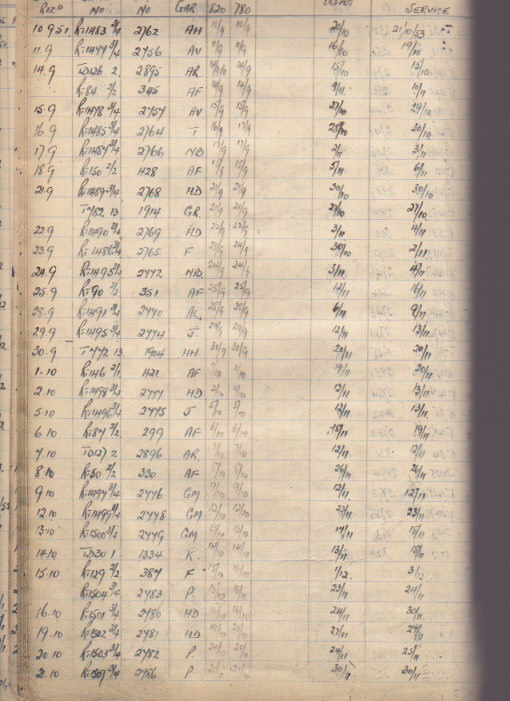 REC'D NO NO GAR 520 780 SERVICE
10.9.51 R.1483 3/4 2762 AH 10/9 11/9 20/10 21/10/53
11.9 R.1477 3/4 2756 AV 11/9 11/9 16/10 19/10
14.9 TD126 2 2895 AR 14/9 14/9 15/10 15/10
R.84 2/2 345 AF 14/9 14/9 9/11 10/11
15.9 R.1478 3/4 2757 AV 15/9 15/9 27/10 29/10
16.9 R.1485 3/4 2764 T 16/9 17/9 28/10 30/10
17.9 R.1487 3/4 2766 NB 17/9 17/9 2/11 3/11
18.9 R.150 2/2 428 AF 17/9 18/9 5/11 6/11
21.9 R.1489 3/4 2768 HD 21/9 21/9 30/10 30/10
T 13 1914 GR 21/9 21/9 27/10 27/10
22.9 R.1490 3/4 2769 HD 22/9 23/9 3/11 4/11
23.9 R.1486 3/4 2765 F 23/9 24/9 30/10 2/11
24.9 R.1493 3/4 2772 NB 24/9 24/9 3/11 4/11
25.9 R.90 2/2 351 AF 25/9 25/9 12/11 16/11
28.9 R.1491 3/4 2770 28/9 28/9 6/11 9/11
29.9 R.1495 3/4 2774 J. 29/9 29/9 12/11 13/11
30.9 13 1904 HH 30/9 30/9 20/11 20/11
1.10 R.146 2/2 421 AF 1/10 2/10 19/11 20/11
2.10 R.1498 3/4 2777 HD 2/10 2/10 12/11 13/11
5.10 R.1496 3/4 2775 J 5/10 5/10 12/11 13/11
6.10 R.87 2/2 299 AF 6/10 6/10 18/11 19/11
7.10 TD127 2 2896 AR 7/10 7/10 12/11 12/11
8.10 R.50 2/2 330 AF 8/10 8/10 26/11 26/11
9.10 R.1497 3/4 2776 GM 9/10 9/10 12/11 12/11
12.10 R.1499 3/4 2778 GM 12/10 12/10 23/11 23/11
13.10 R.1500 3/4 2779 GM 13/10 13/10 17/11 18/11
14.10 TD30 1 1334 K. 14/10 14/10 13/11 18/11
15.10 R.129 2/2 387 F 15/10 16/10 1/12 3/12
R.1504 3/4 2783 P. 15/10 16/10 23/11 24/11
16.10 R.1501 3/4 2780 HD 16/10 16/10 24/11 30/11
19.10 R.1502 3/4 2781 HD 19/10 20/10 27/11 27/11
20.10 R.1503 3/4 2782 P. 20/10 20/10 24/11 25/11
21.10 R.1507 3/4 2786 P 21/10 21/10 30/11 30/11